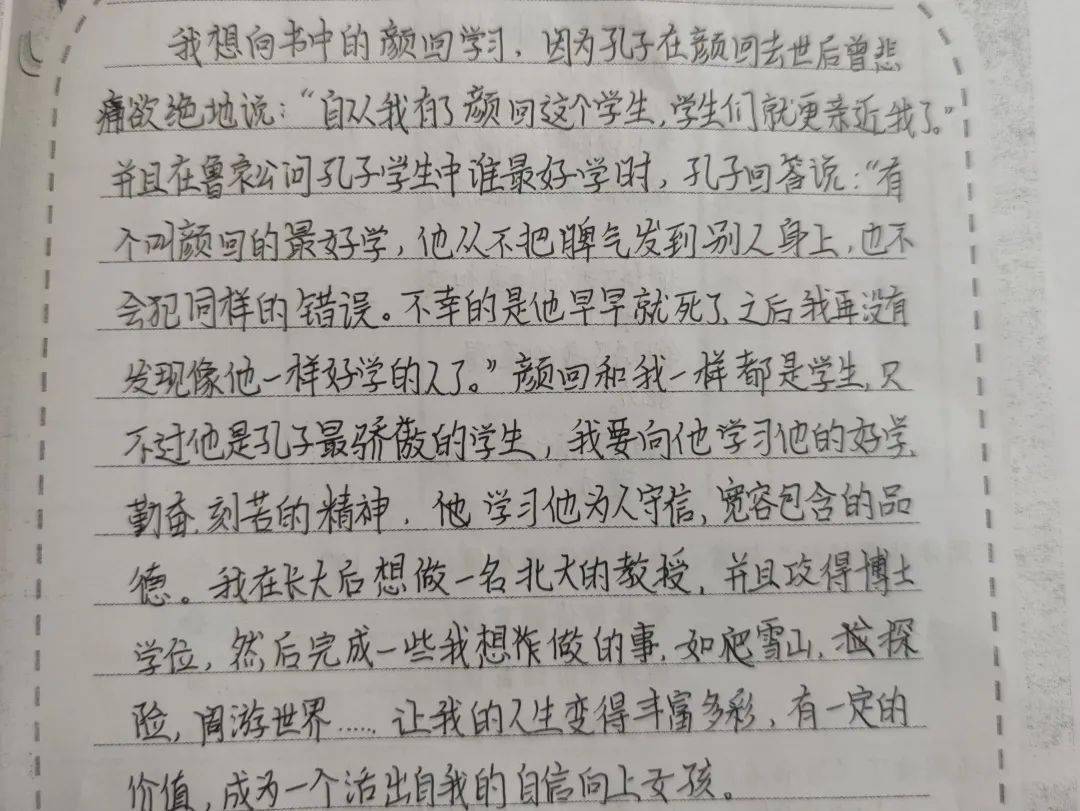 我想向书中的颜回学习，因为孔子在颜回去世后曾悲
痛欲绝地说：“自从我有了颜回这个学生，学生们就更亲近我了。”
并且在鲁哀公问孔子学生中谁最好学时，孔子回答说：“有
个叫颜回的最好学，他从不把脾气发到别人身上，也不
会犯同样的错误。不幸的是他早早就死了，之后我再没有
发现像他一样好学的人了。”颜回和我一样都是学生，只
不过他是孔子最骄傲的学生，我要向他学习他的好学、
勤奋、刻苦的精神，他学习他为人守信，宽容包含的品
德。我在长大后想做一名北大的教授，并且攻得博士
学位，然后完成一些我想做的事，如爬雪山，探
险，周游世界……让我的人生变得丰富多彩，有一定的
价值，成为一个活出自我的自信向上女孩。